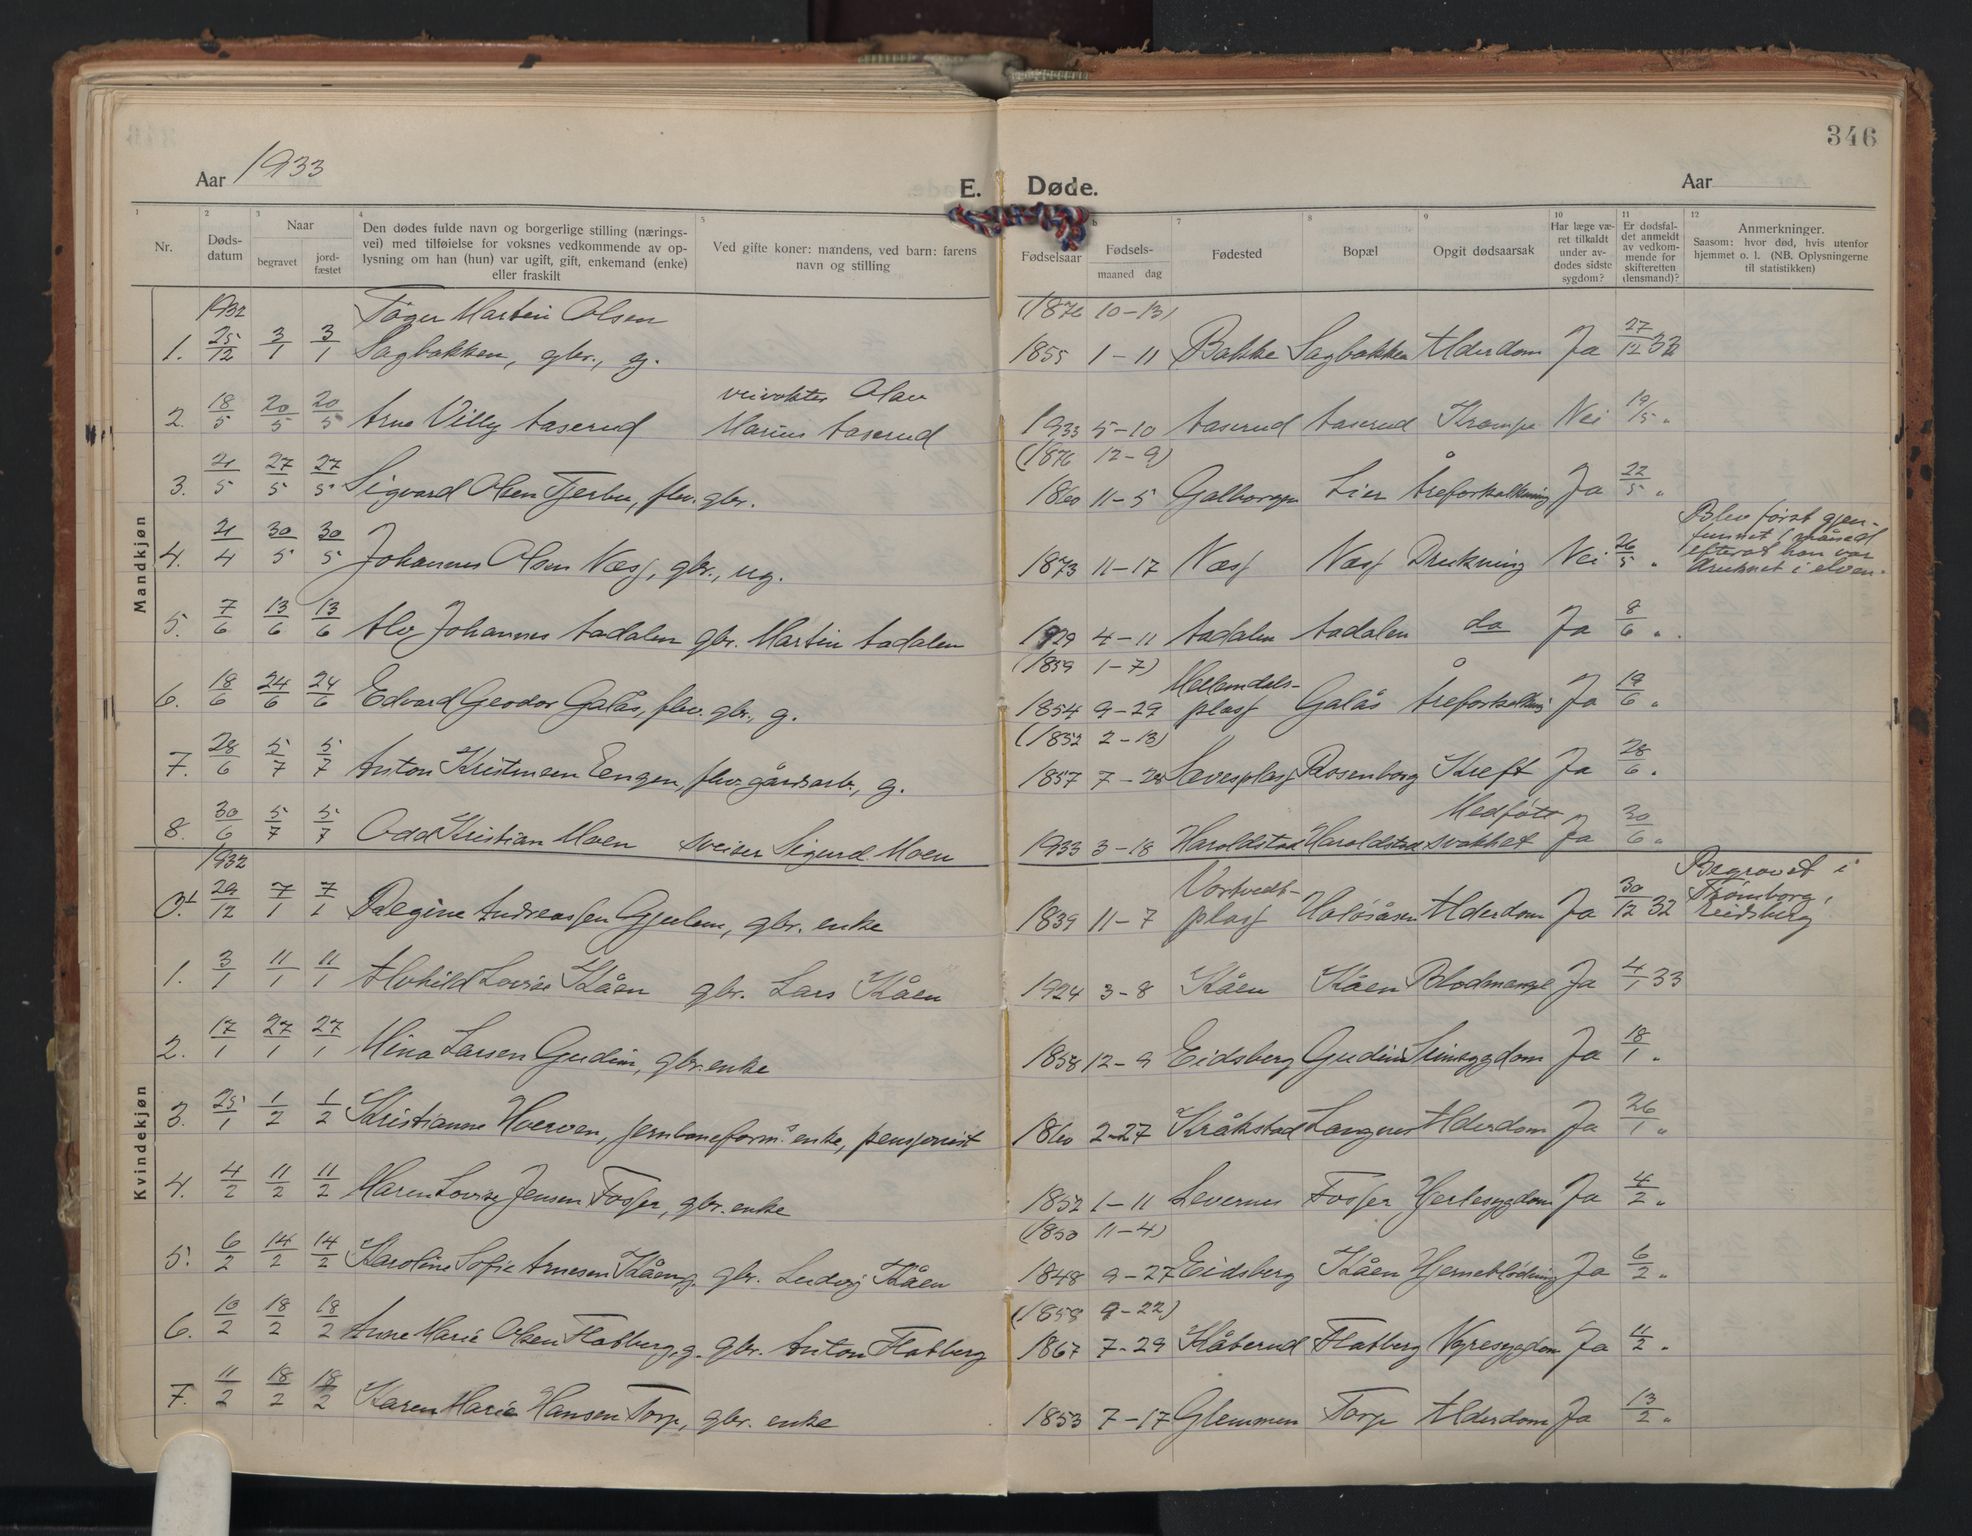 346
Aar 1933
E. Døde.
Aar
1 2 3 4 5 6 7 8 9 10 11 12
Nr.
Døds-
datum
Naar
begravet
jord-
fæstet
Den dødes fulde navn og borgerlige stilling (nærings-
vei) med tilføielse for voksnes vedkommende av op-
lysning om han (hun) var ugift, gift, enkemand (enke)
eller fraskilt
Ved gifte koner: mandens, ved barn: farens
navn og stilling
Fødselsaar
Fødsels-
maaned dag
Fødested
Bopæl
Opgit dødsaarsak
Har læge væ-
ret tilkaldt
under av-
dødes sidste
sygdom?
Er dødsfal-
det anmeldt
av vedkom-
mende for
skifteretten
(lensmand)?
Anmerkninger.
Saasom: hvor død, hvis utenfor
hjemmet o. l. (NB. Oplysningerne
til statistikken)
Mandkjøn
1932 Martin Olsen (1876 10-13)
1. 25/12 3/1 3/1 Sagbakken, gbr., g. 1855 1-11 Bakke Sagbakken Alderdom Ja 27/12 32
veivokter Olav
2. 18/5 20/5 20/5 Arne Villy Aaserud Marius Aaserud 1933 5-10 Aaserud Aaserud Krampe Nei 19/5 "
(1876 12-9)
3. 21/5 27/5 27/5 Sigvard Olsen, flv. gbr. 1860 11-5 Lier Åreforkalkning Ja 22/5 "
Blev først gjen-
funnet 1 måned
efterat han var
druknet i elven.
4. 21/4 30/5 30/5 Johannes Olsen Næss, gbr., ug. 1873 11-17 Næss Næss Drukning Nei 26/5 "
5. 7/6 13/6 13/6 Alv Johannes Aadalen gbr. Martin Aadalen 1929 4-11 Aadalen Aadalen do Ja 8/6 "
(1859 1-7)
6. 18/6 24/6 24/6 Edvard Geodor Galås, flv. gbr., g. 1854 9-29 plass Galås Åreforkalkning Ja 19/6 "
(1832 2-13)
7. 28/6 5/7 5/7 Anton Kristinsen Engen, flv. gårdsarb., g. 1857 7-28 Rosenborg Kreft Ja 28/6 "
Medfødt
8. 30/6 5/7 5/7 Odd Kristian Moen sveiser Sigurd Moen 1933 3-18 Haroldstad Haroldstad svakhet Ja 30/6 "
Kvindekjøn
1932 Begravet i
Trømborg,
Eidsberg
29/12 7/1 7/1 Regine Andreassen Gjulem, gbr. enke 1839 11-7 plass Alderdom Ja 30/12 32
1. 3/1 11/1 11/1 Alvhild Lovise Kåen gbr. Lars Kåen 1924 3-8 Kåen Kåen Blodmangel Ja 4/1 33
2. 17/1 27/1 27/1 Mina Larsen Gudim, gbr. enke 1858 12-9 Eidsberg Gudim Sinnsygdom Ja 18/1 "
3. 25/1 1/2 1/2 Kristianne Hverven, jernbaneform. enke, pensjonist 1860 2-27 Kråkstad Langnes Alderdom Ja 26/1 "
4. 4/2 11/2 11/2 Maren Lovise Jensen Fosser, gbr. enke 1852 1-11 Levernes Fosser Hjertesygdom Ja 4/2 "
(1850 11-4)
5. 6/2 14/2 14/2 Karoline Sofie Arnesen Kåen, g. gbr. Ludvig Kåen 1848 9-27 Eidsberg Kåen Hjerneblødning Ja 6/2 "
(1858 9-22)
6. 10/2 18/2 18/2 Anne Marie Olsen Flatberg, g. gbr. Anton Flatberg 1867 7-29 Kåterud Flatberg Nyresygdom Ja 11/2 "
7. 11/2 18/2 18/2 Karen Marie Hansen Torp, gbr. enke 1853 7-17 Glemmen Torp Alderdom Ja 13/2 "